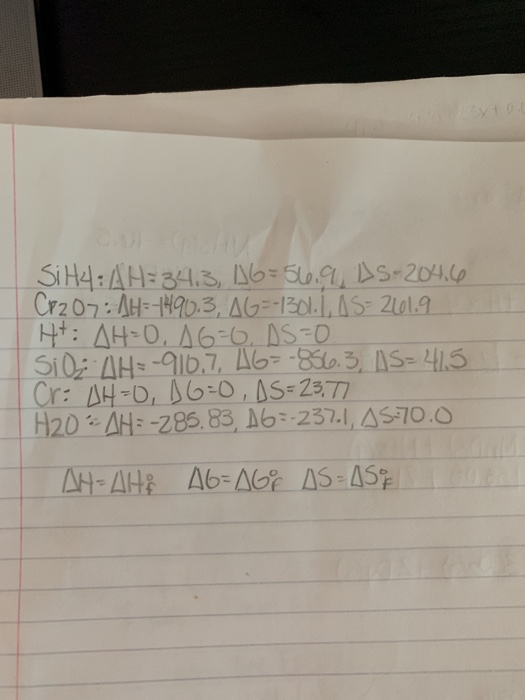 SiH4: ΔH=34.3, ΔG=56.9, ΔS=204.6
Cr2O7: ΔH=-1490.3, ΔG=-1301.1, ΔS=261.9
H+: ΔH=0, ΔG=0, ΔS=0
SiO2: ΔH=-910.7, ΔG=-856.3, ΔS=41.5
Cr: ΔH=0, ΔG=0, ΔS=23.77
H2O: ΔH=-285.83, ΔG=-237.1, ΔS=70.0
ΔH=ΔH°f ΔG=ΔG°f ΔS=ΔS°f